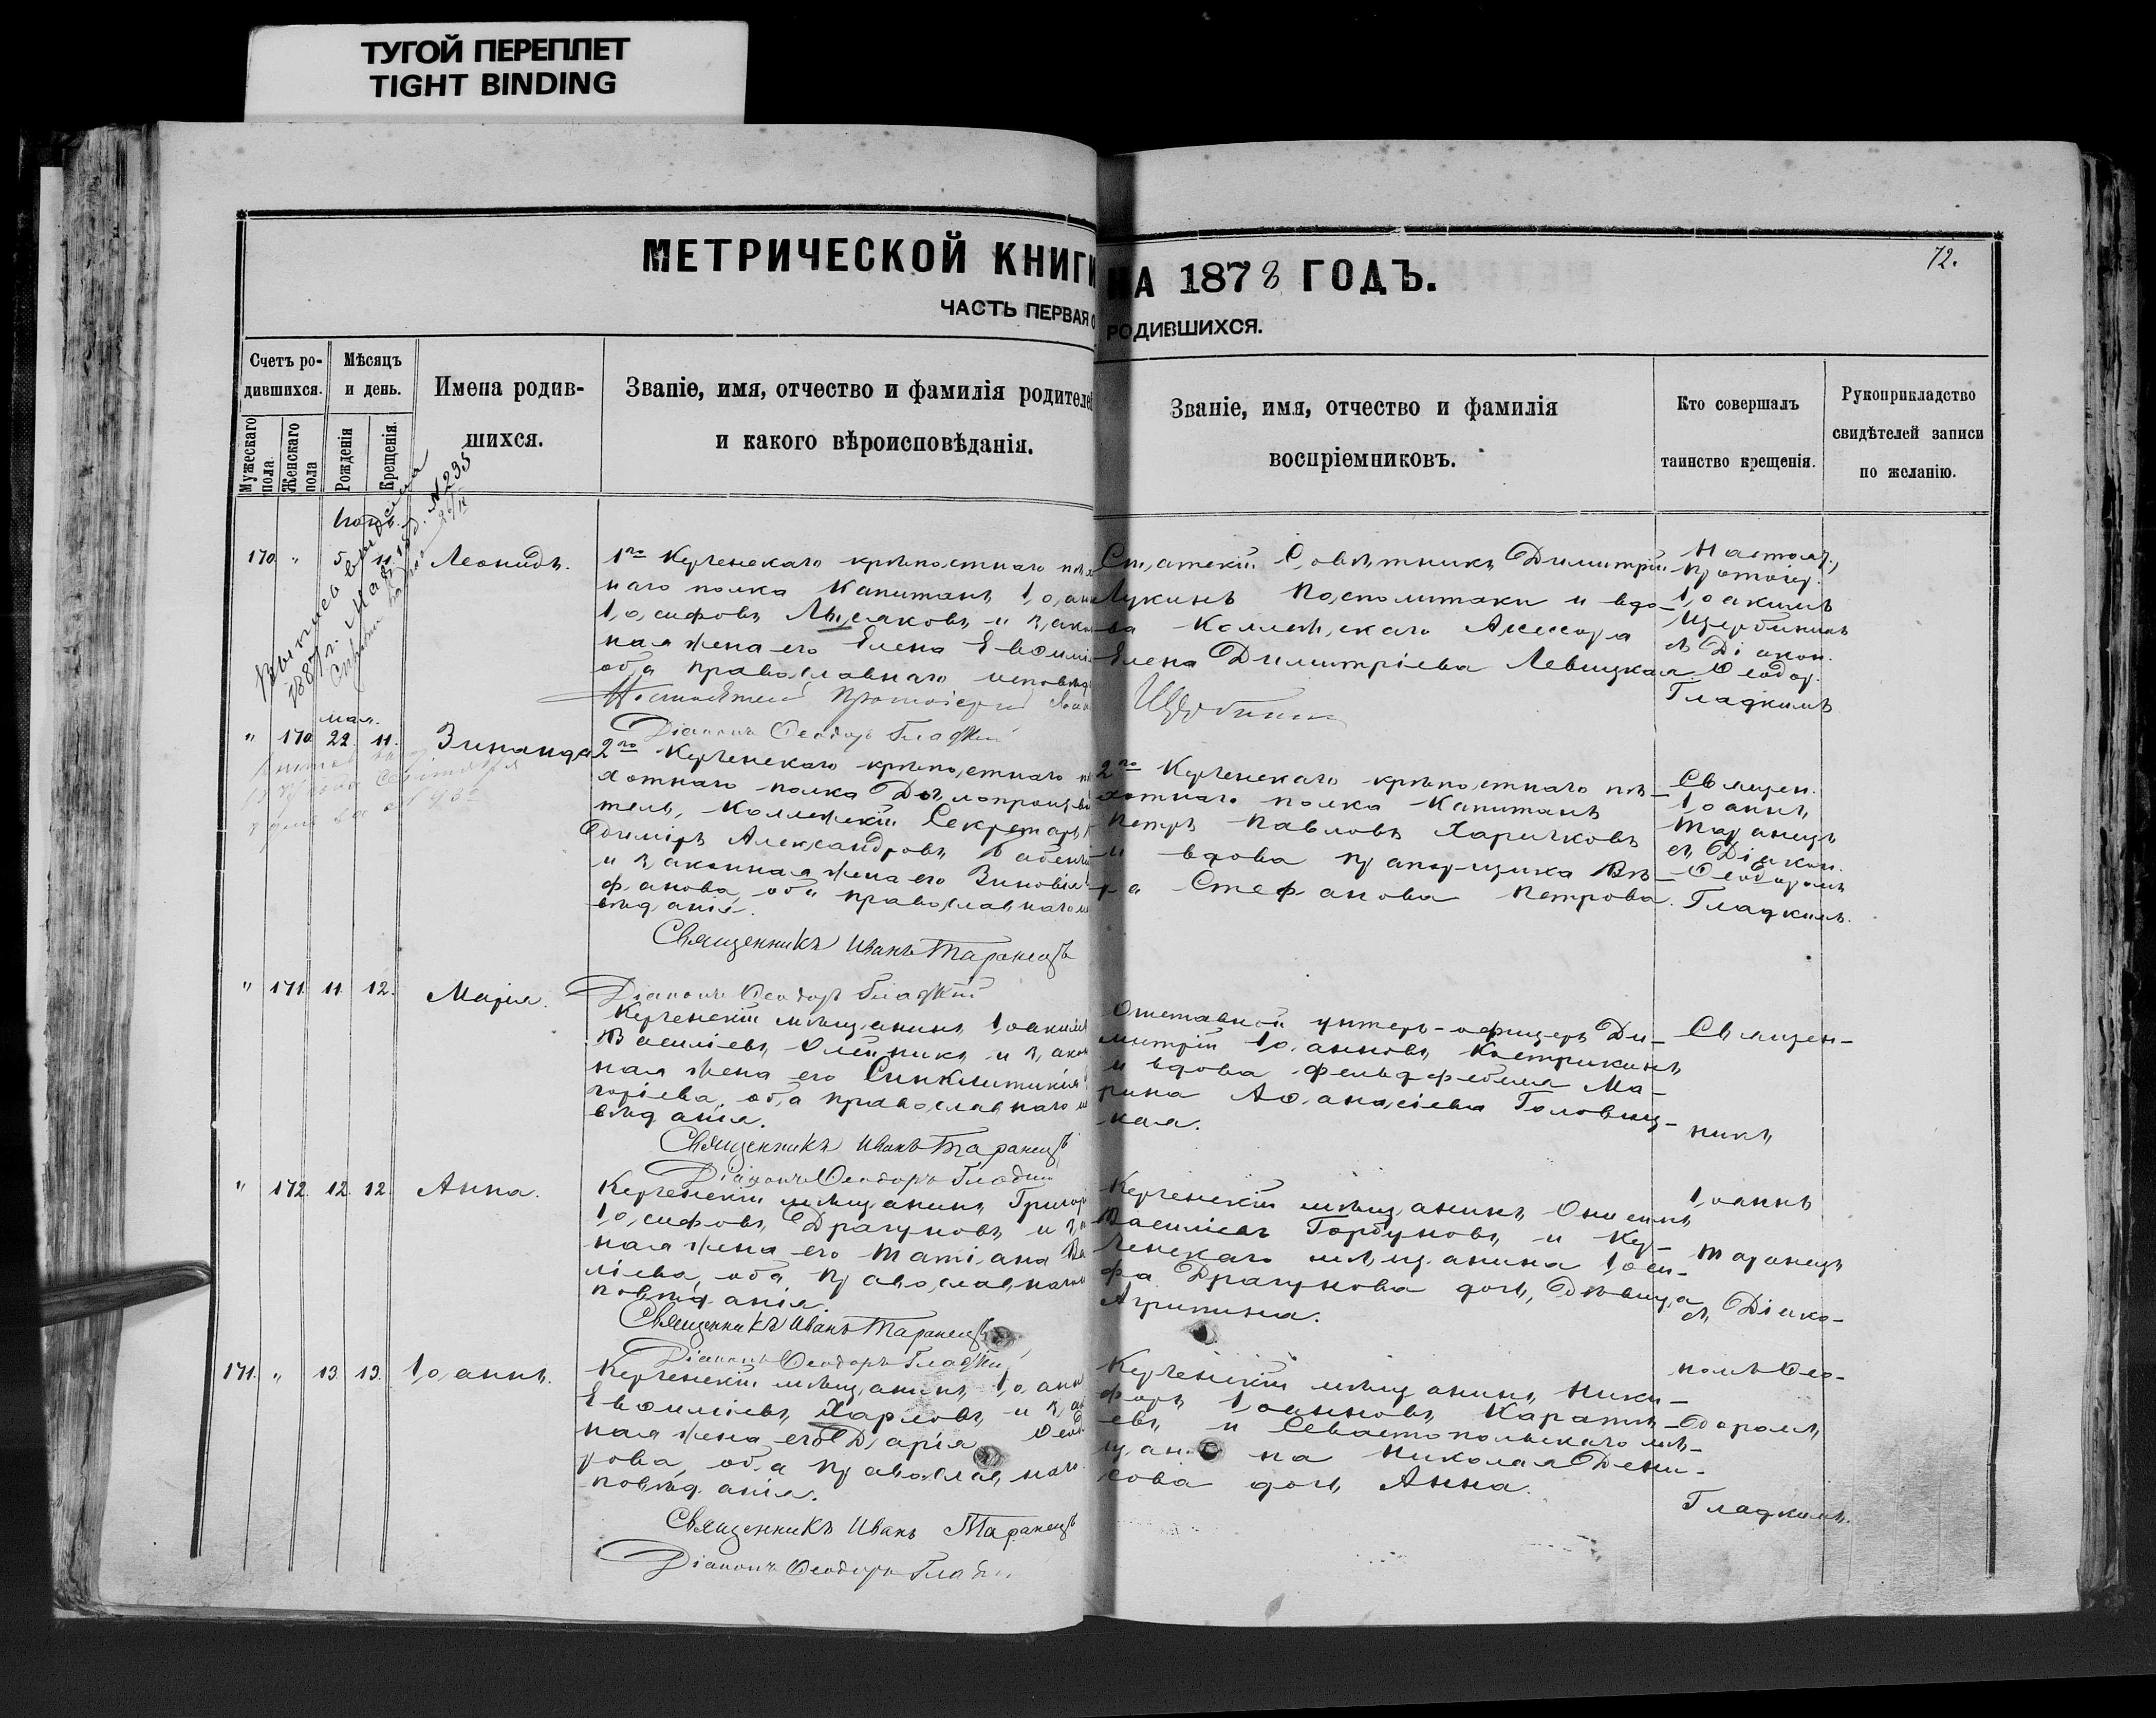 ТУГОЙ ПЕРЕПЛЕТ
TIGHT BINDING
МЕТРИЧЕСКОЙ КНИГИ НА 1878 ГОДЪ.
72.
ЧАСТЬ ПЕРВАЯ О РОДИВШИХСЯ.
Счетъ ро-
дившихся.
Мужескаго пола.
Женскаго пола
Мѣсяцъ
и день.
Рожденія
Крещенія.
Имена родив-
шихся.
Званіе, имя, отчество и фамилія родителей
и какого вѣроисповѣданія.
Званіе, имя, отчество и фамилія
воспріемниковъ.
Кто совершалъ
таинство крещенія.
Рукоприкладство
свидѣтелей записи
по желанію.
170. " 5. 11. Леонидъ.
1го Керченскаго крѣпостнаго пѣх
наго полка Капитанъ Іоан
Іосифовъ Лысаковъ и зако
ная жена его Елена Евѳимі
оба православнаго исповѣд
Настоятель Протоіерей
Діаконъ Ѳеодоръ Гладкій
Статскій Совѣтникъ Димитрій
Лукинъ Посполитаки и вдо-
ва Коллежскаго Ассесора
Елена Димитріева Левицкая
Щербинин
Настоят.,
Протоіер.
Іоакимъ
съ Діакон.
Ѳеодор.
Гладкимъ
мая.
" 170 22. 11. Зинаида
2го Керченскаго крѣпостнаго пѣ
хотнаго полка Дѣлопроизво
тель, Коллежскій Секретарь
димиръ Александровъ
и законная жена его Зиновія
фанова, оба православнаго и
вѣданія.
Священникъ Иванъ Таранецъ
Діаконъ Ѳеодоръ Гладкій
2го Керченскаго крѣпостнаго пѣ-
хотнаго полка Капитанъ
Петръ Павловъ Харичковъ
и вдова прапорщика Вѣ-
ра Стефанова Петрова.
Священ.
Іоаннъ
Таранецъ
съ Діакон.
Ѳеодоромъ
Гладкимъ.
" 171. 11. 12. Марія.
Керченскій мѣщанинъ Іоакимъ
Василіевъ Олейникъ и закон
ная жена его Синклитикія
горіева, оба православнаго и
вѣданія.
Священникъ Иванъ Таранецъ
Діаконъ Ѳеодоръ Гладкій
Отставной унтеръ-офицеръ Ди-
митрій Іоанновъ Кострикинъ
и вдова фельдфебеля Ма-
рина Аѳанасіева Головиц-
кая.
Священ-
никъ
" 172. 12. 12. Анна.
Керченскій мѣщанинъ Григор
Іосифовъ Драгуновъ и за
ная жена его Татіана Ва
ліева, оба православнаго
повѣданія.
Священникъ Иванъ Таранецъ
Діаконъ Ѳеодоръ Гладкій
Керченскій мѣщанинъ Онисимъ
Василіевъ Горбуновъ и Кер-
ченскаго мѣщанина Іоси-
фа Драгунова дочь, дѣвица
Агрипина.
Іоаннъ
Таранецъ
съ Діако-
171. " 13. 13. Іоаннъ.
Керченскій мѣщанинъ Іоанн
Евѳиміевъ Харловъ и за
ная жена его Дарія Ѳеод
рова, оба православнаго
повѣданія.
Священникъ Иванъ Таранецъ
Діаконъ Ѳеодоръ Гладкій
Керченскій мѣщанинъ Ники-
форъ Іоанновъ
евъ и Севастопольскаго мѣ-
щанина Николая Дени-
сова дочь Анна.
номъ Ѳео-
доромъ
Гладкимъ.